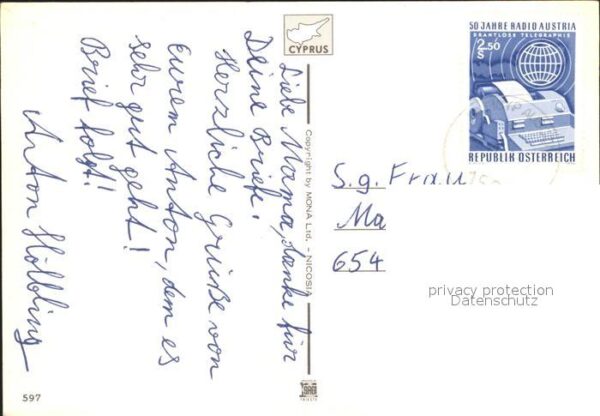 CYPRUS
50 JAHRE RADIO AUSTRIA
DRAHTLOSE TELEGRAPHIE
2.50
S
REPUBLIK ÖSTERREICH
Liebe Mama, danke für
Deine Briefe!
Herzliche Grüße von
Eurem Anton, dem es
sehr gut geht!
Brief folgt!
Anton Hölbling
Copyright by MONA Ltd. - NICOSIA
S.g. Frau
Ma
654
privacy protection
Datenschutz
597